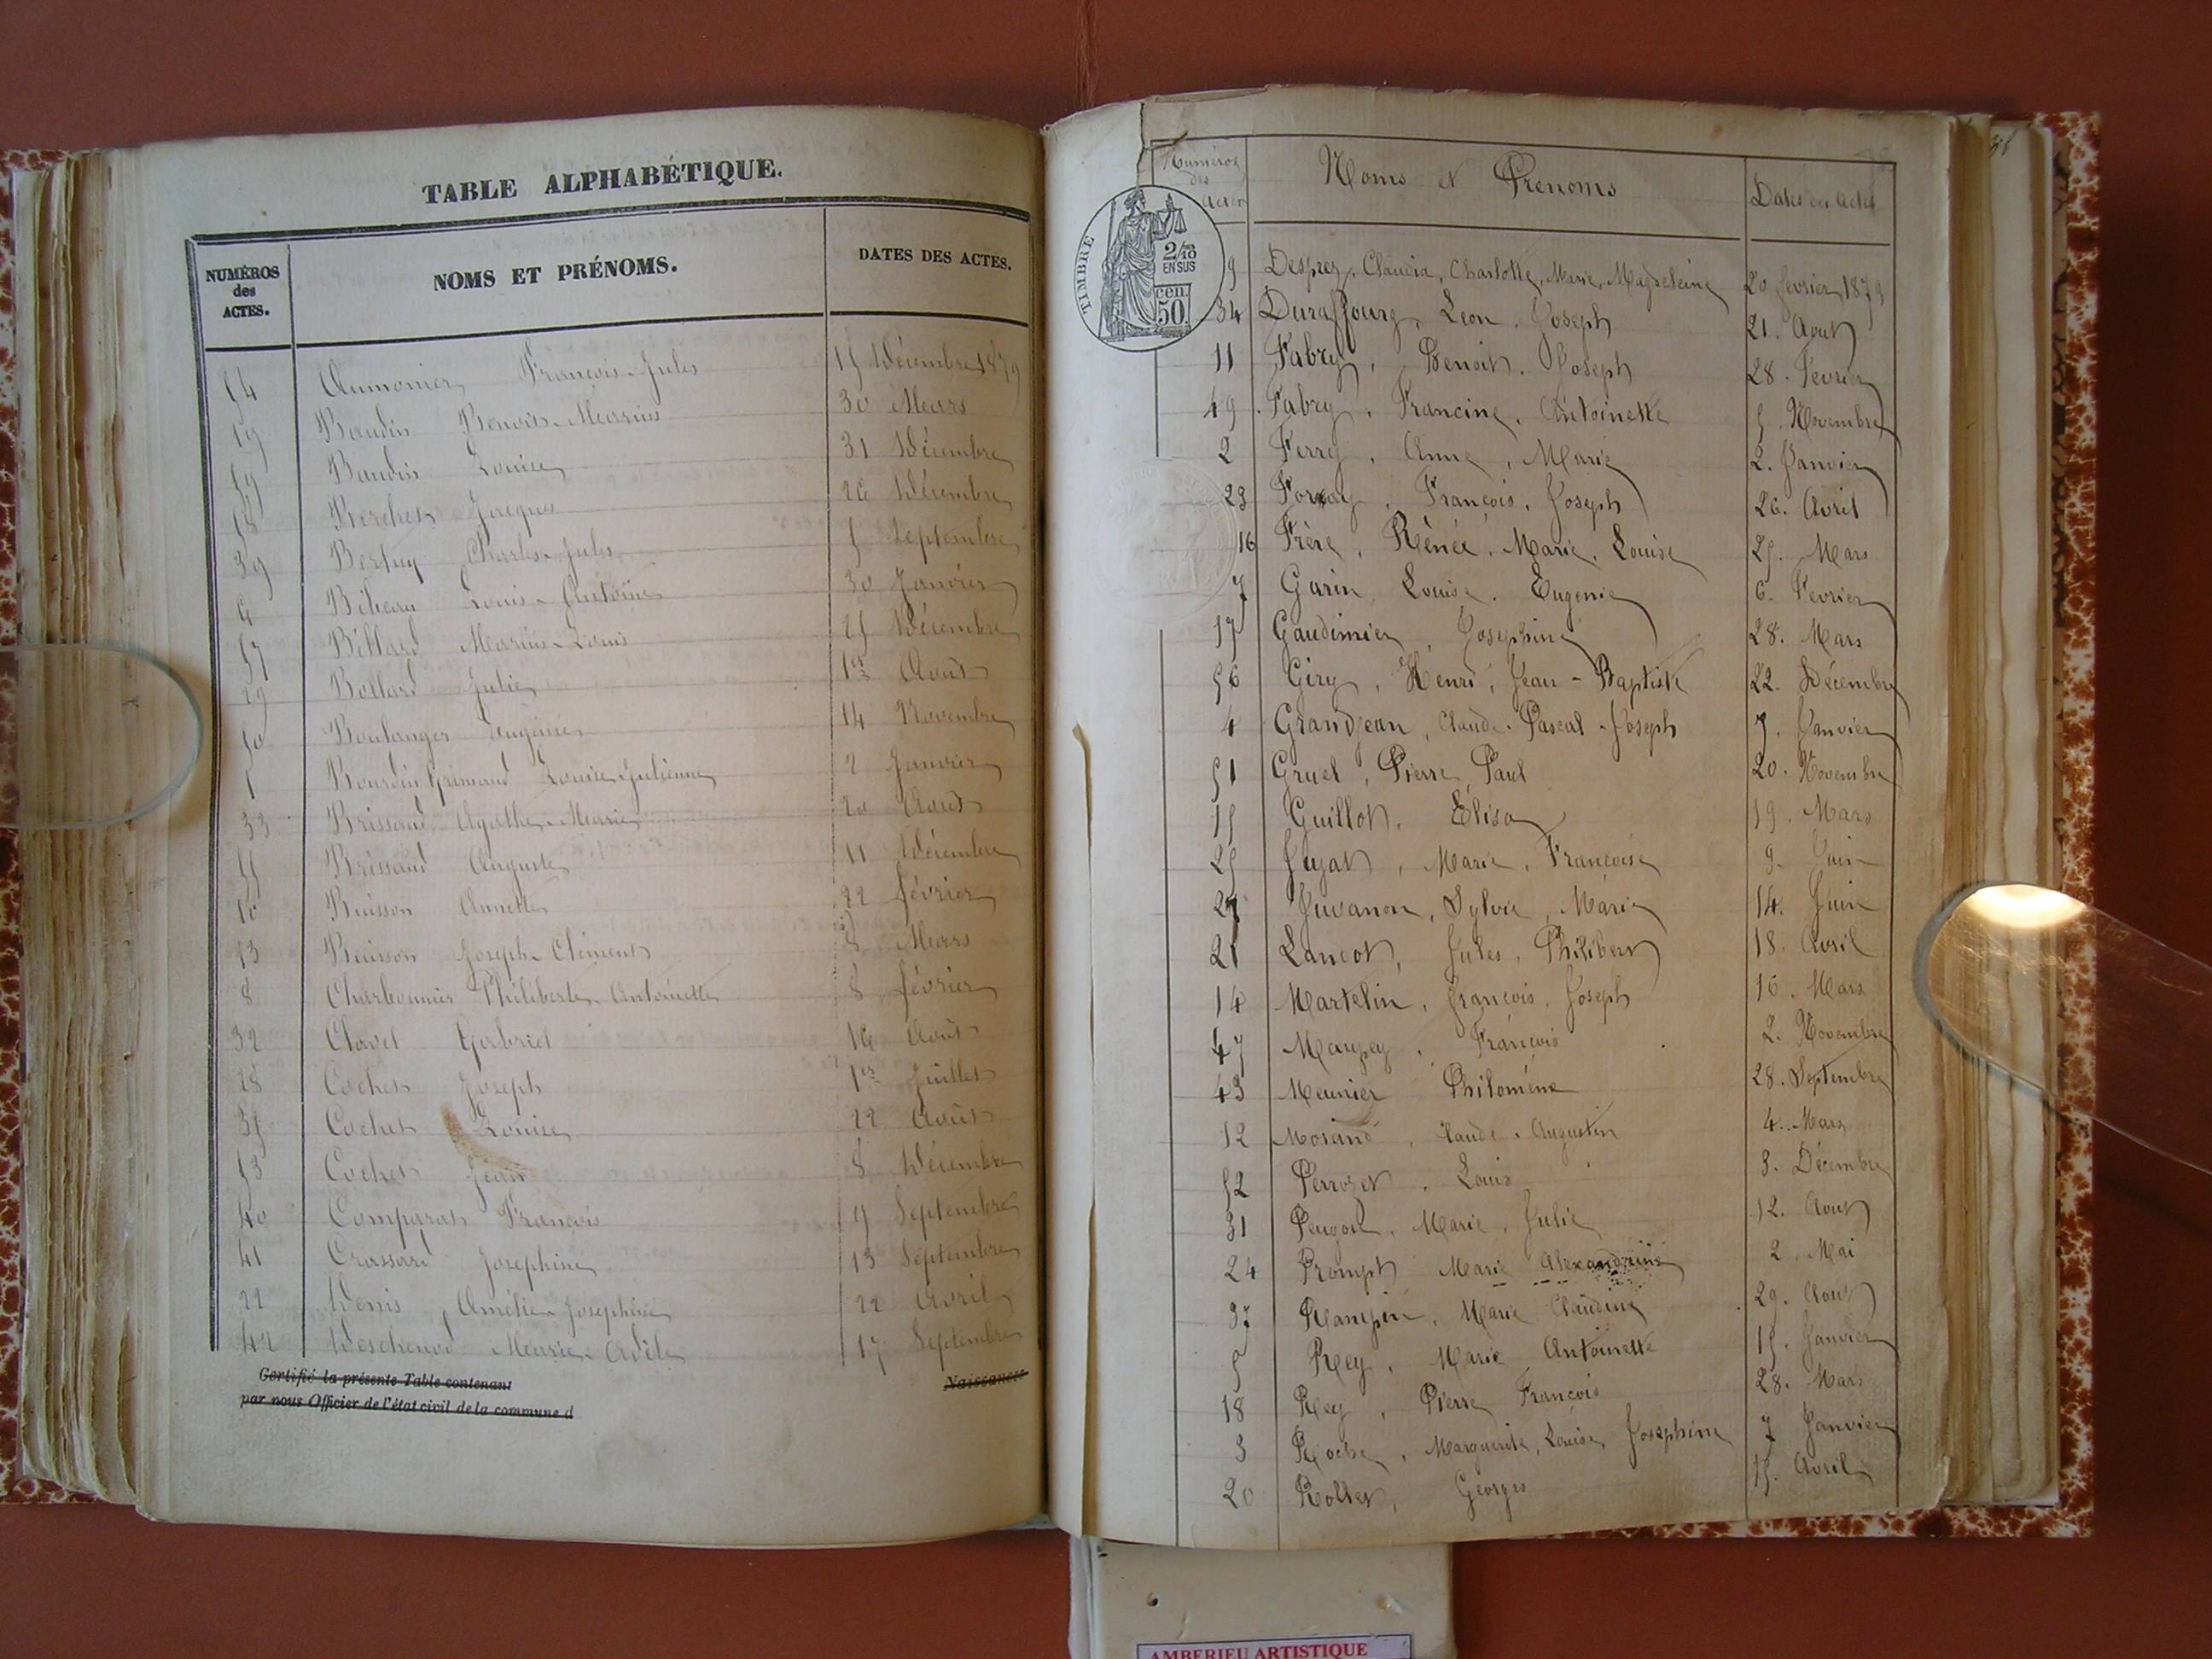 TABLE ALPHABÉTIQUE.
NUMÉROS des ACTES. NOMS ET PRÉNOMS. DATES DES ACTES.
54 Aumonier François-Jules 15 Décembre 1879
19 Baudin Benoit-Marius 30 Mars
59 Baudin Louise 31 Décembre
58 Berchet Jacques 26 Décembre
39 Bertuy Charles-Jules 5 Septembre
6 Louis-Antoine 30 Janvier
57 Billard Marius-Louis 25 Décembre
29 Bollard Julie 1er Août
50 Boulanger Eugénie 14 Novembre
1 Bourdin Grimaud Louise Julienne 2 Janvier
33 Brissaud Agathe-Marie 20 Août
55 Brissaud Auguste Décembre
10 Buisson Annette 22 février
13 Buisson Joseph-Clément 8 Mars
8 Charbonnier Philiberte-Antoinette 8 février
32 Clavel Gabriel 16 Août
28 Cochet Joseph 1er Juillet
35 Cochet Louise 22 Août
53 Cochet Jean 8 Décembre
40 Comparat François 9 Septembre
41 Crassard Josephine 13 Septembre
22 Denis Amélie-Josephine 22 Avril
42 Marie-Adèle 17 Septembre
Certifié la présente Table contenant Naissances
par nous Officier de l'état civil de la commune d
Numéros des Actes Noms et Prenoms Dates des Actes
TIMBRE 2/10 EN SUS 50 cen.
9 Desprez, Claudia, Charlotte, Marie, Magdeleine 20 fevrier 1879
34 Duraffourg, Leon, Joseph 21. Aout
11 Fabry, Benoit, Joseph 28. Fevrier
49. Fabry, Francine, Antoinette 5. Novembre
2 Ferry, Anne, Marie 2. Janvier
23 François, Joseph 26. Avril
16 Frère, Rénée, Marie, Louise 25. Mars
7 Garin, Louise, Eugenie 6. Fevrier
17 Gaudimier, Josephine 28. Mars
56 Giry, Henri, Jean-Baptiste 22. Décembre
4 Grandjean, Claude-Pascal-Joseph 7. Janvier
51 Gruel, Pierre Paul 20. Novembre
15 Guillot, Élisa 19. Mars
25 Juyat, Marie, Françoise 9. Juin
27 Juvanon, Sylvie, Marie 14. Juin
21 Lancot, Jules, Philibert 18. Avril
14 Martelin, François, Joseph 16. Mars
47 François 2. Novembre
43 Meunier Philomène 28. Septembre
12 Morand, Claude, Augustin 4. Mars
52 Perroset, Louis 3. Décembre
31 Marie, Julie 12. Aout
24 Prompt Marie Alexandrine 2. Mai
37 Rampin, Marie Claudine 29. Aout
5 Rey, Marie Antoinette 15. Janvier
18 Rey, Pierre François 28. Mars
3 Roche, Marguerite, Louise, Josephine 7 Janvier
20 Rollet, Georges 15. Avril
AMBERIEU ARTISTIQUE